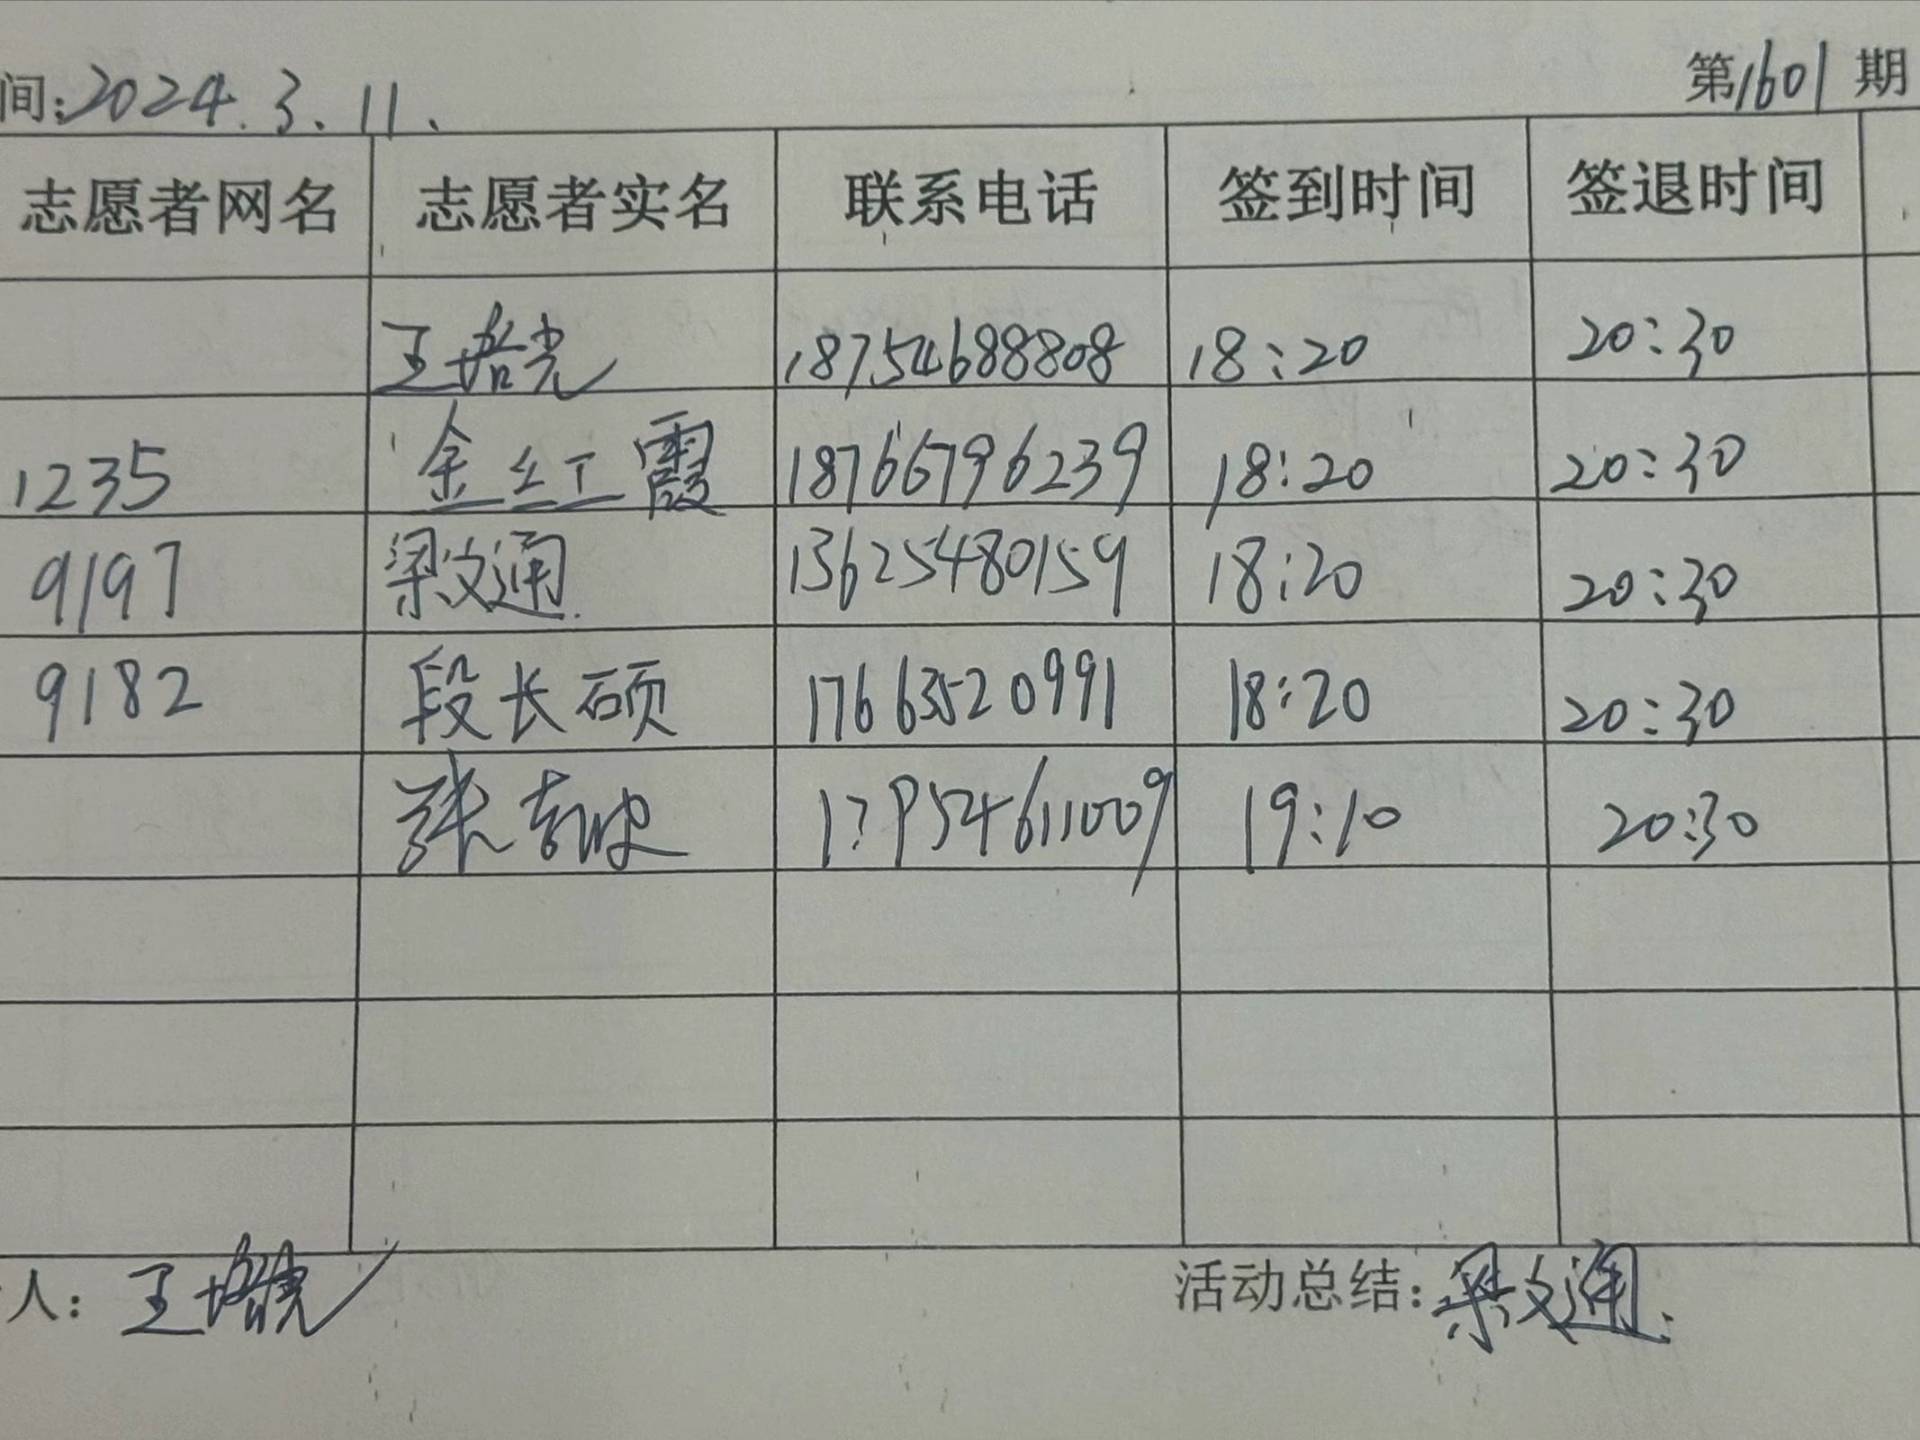 间:2024.3.11. 第1601期
志愿者网名 志愿者实名 联系电话 签到时间 签退时间
王培光 18754688808 18:20 20:30
1235 金红霞 18766796239 18:20 20:30
9197 梁文通 13625480159 18:20 20:30
9182 段长硕 17663520991 18:20 20:30
张 19:10 20:30
人: 王培光 活动总结: 梁文通